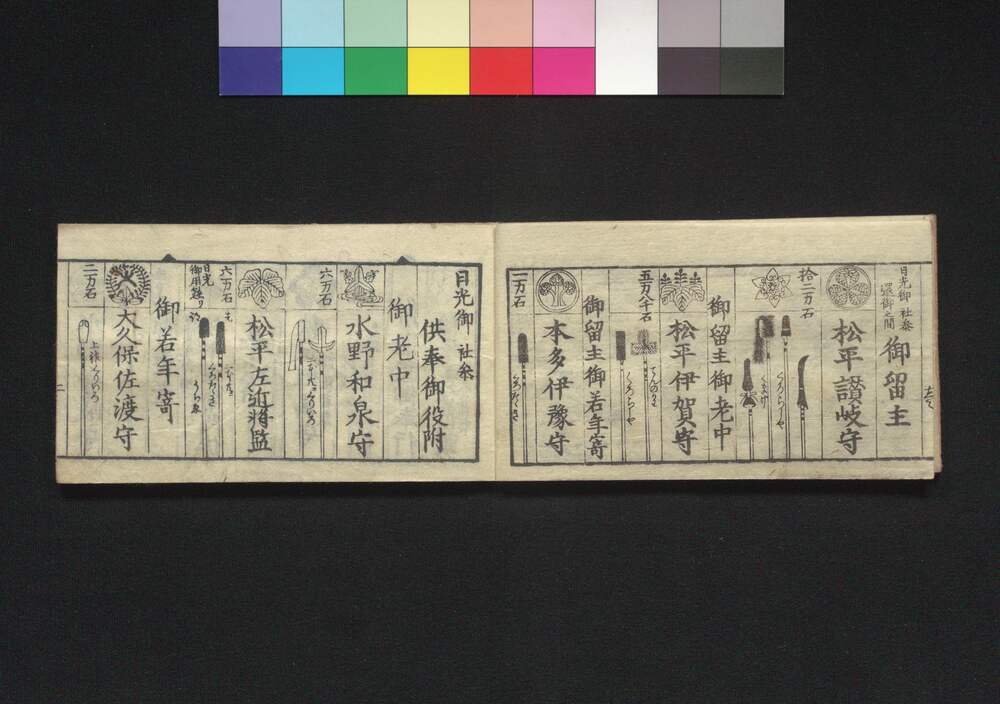 日光御社参
還御之間
御留主
松平讃岐守
拾二万石
くろらしや
御留主御老中
松平伊賀守
五万八千石
くろらしや
御留主御若年寄
本多伊豫守
一万石
日光御社参
供奉御役附
御老中
水野和泉守
六万石
松平左近将監
六万石
日光
御用懸り
御若年寄
大久保佐渡守
二万石
二